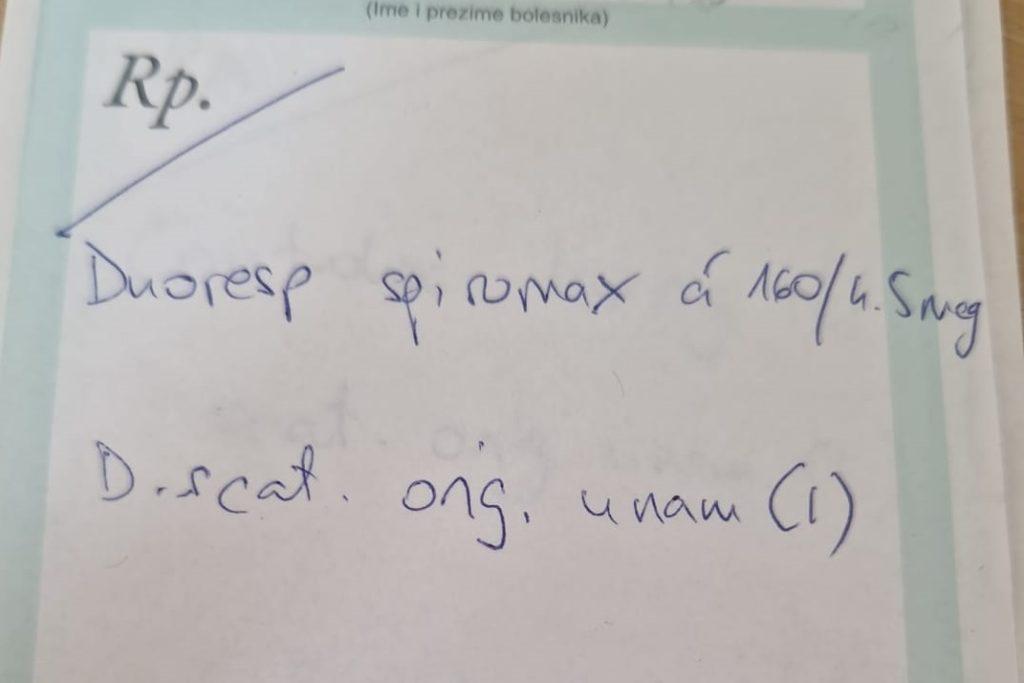 (Ime i prezime bolesnika)
Rp.
Duoresp spiromax á 160/4.5mcg
D. scat. orig. unam (1)